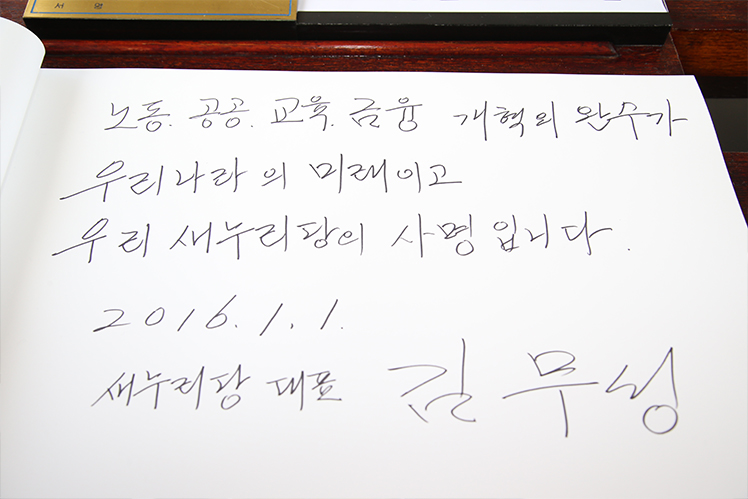 서명
노동. 공공. 교육. 금융 개혁의 완수가
우리나라의 미래이고
우리 새누리당의 사명입니다.
2016. 1. 1.
새누리당 대표 김무성